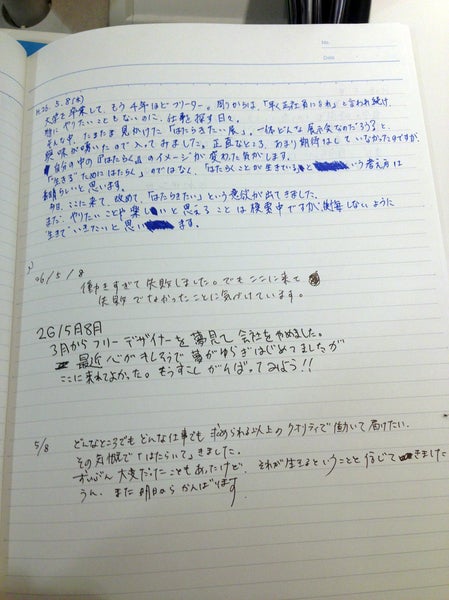 No.
Date
H.26. 5. 8(木)
大学を卒業して、もう4年ほどフリーター。周りからは「早く正社員になれ」と言われ続け、
特に やりたいこともないのに、仕事を探す日々。
そんな中、たまたま見かけた「はたらきたい展」。一体どんな展示会なのだろう？と
興味が湧いたので入ってみました。正直なところ、あまり期待はしていなかったのですが、
自分の中の『はたらく』のイメージが変わった気がします。
"生きる"ために"はたらく"のではなく、「はたらくことが生きている」という考え方は
素晴らしいと思います。
今日、ここに来て、改めて、「はたらきたい」という意欲が出てきました。
まだ、やりたいことや楽しいと思えることは模索中ですが、後悔しないように
"生きて"いきたいと思います。
06/5/8
働きすぎて失敗しました。でもここに来て
失敗でなかったことに気づけています。
26/5月8日
3月からフリーデザイナーを夢見て会社をやめました。
最近 心がおれそうで夢がゆらぎはじめてましたが
ここに来れてよかった。もうすこしがんばってみよう!!
5/8
どんなところでもどんな仕事でも求められる以上のクオリティで働いて届けたい。
その気概で「はたらいて」きました。
ずいぶん大変だったこともあったけど、それが生きるということと信じてきました
うん、また明日からがんばります